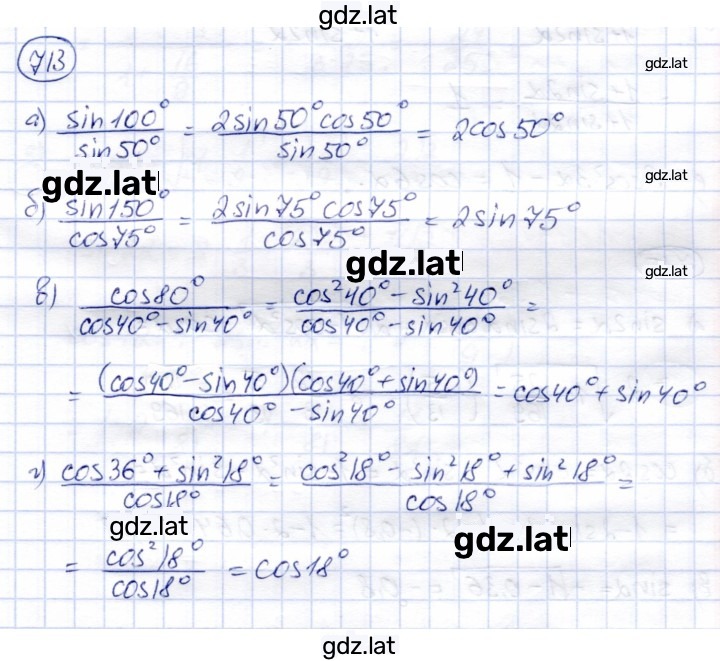 gdz.lat
713
gdz.lat
а) sin100°/sin50° = 2sin50°cos50°/sin50° = 2cos50°
gdz.lat
gdz.lat
б) sin150°/cos75° = 2sin75°cos75°/cos75° = 2sin75°
gdz.lat
gdz.lat
в) cos80°/cos40°-sin40° = cos²40°-sin²40°/cos40°-sin40° =
= (cos40°-sin40°)(cos40°+sin40°)/cos40°-sin40° = cos40°+sin40°
г) cos36°+sin²18°/cos18° = cos²18°-sin²18°+sin²18°/cos18° =
gdz.lat
gdz.lat
= cos²18°/cos18° = cos18°
gdz.lat